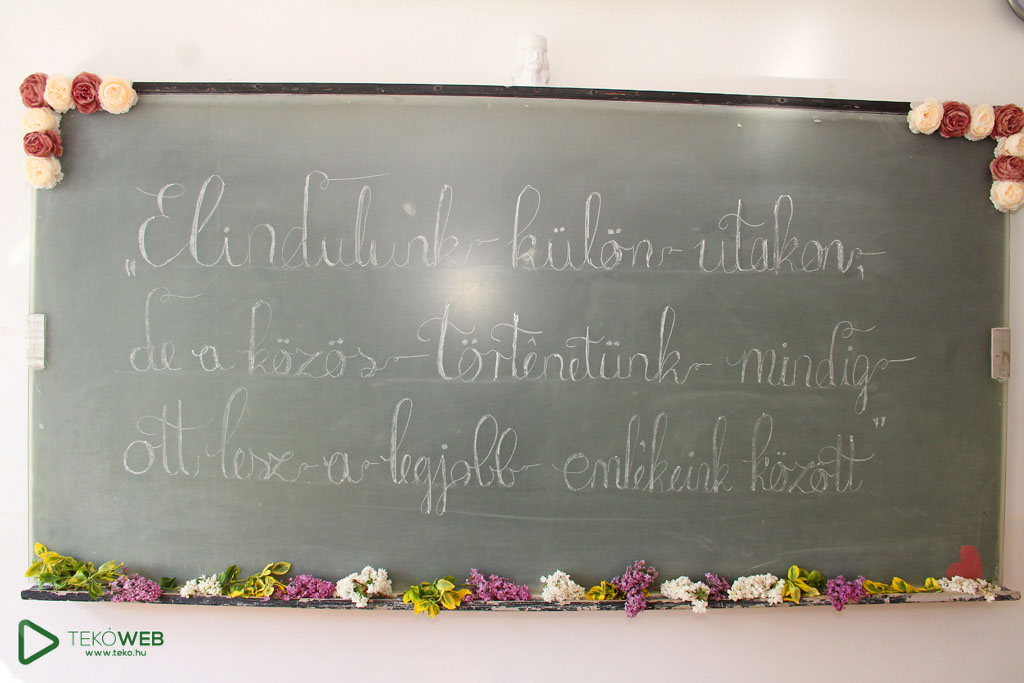 „Elindulunk külön utakon,
de a közös történetünk mindig
ott lesz a legjobb emlékeink között"
TEKÓWEB
www.teko.hu